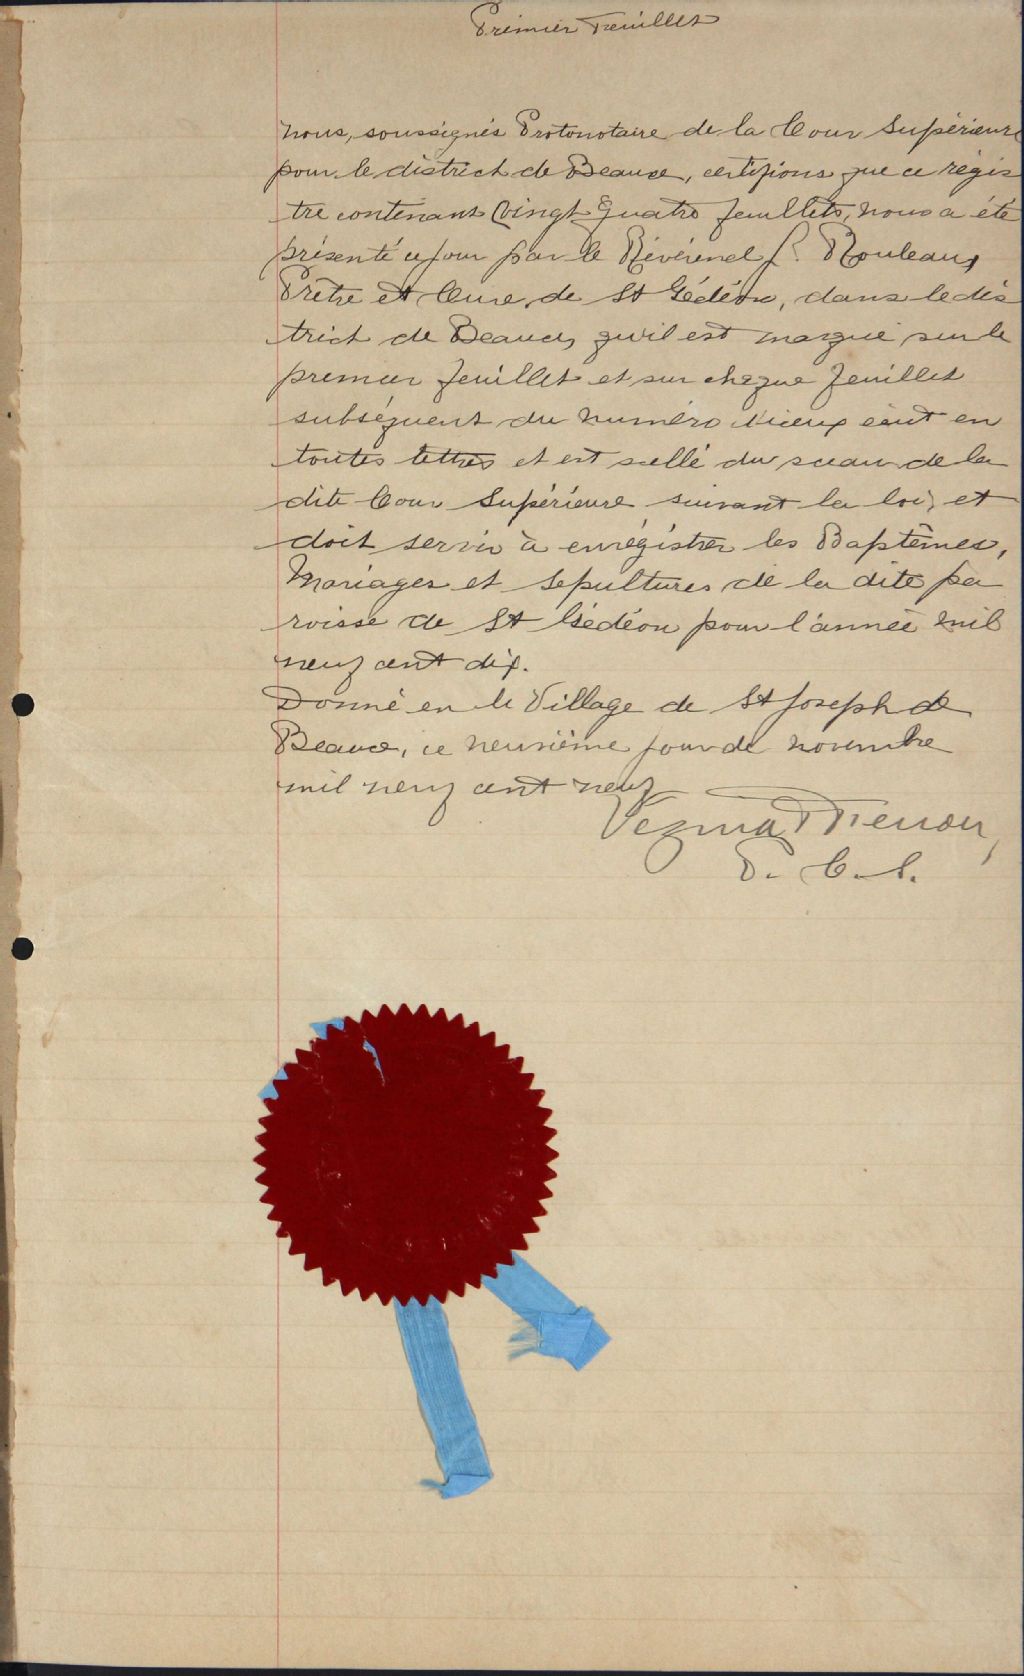 Premier Feuillet
Nous, soussignés Protonotaire de la Cour Supérieure
pour le district de Beauce, certifions que ce régis
tre contenant Vingt Quatre feuillets, nous a été
présenté ce jour par le Révérend J. Rouleau,
Prêtre et Curé de St Gédéon, dans le dis
trict de Beauce, qu'il est marqué sur le
premier feuillet et sur chaque feuillet
subséquent du numéro d'iceux écrit en
toutes lettres et est scellé du sceau de la
dite Cour Supérieure suivant la loi, et
doit servir à enrégistrer les Baptêmes,
Mariages et Sepultures de la dite pa
roisse de St Gédéon pour l'année mil
neuf cent dix.
Donné en le Village de St Joseph de
Beauce, ce neuvième jour de novembre
mil neuf cent neuf
Vezina
P. C. S.